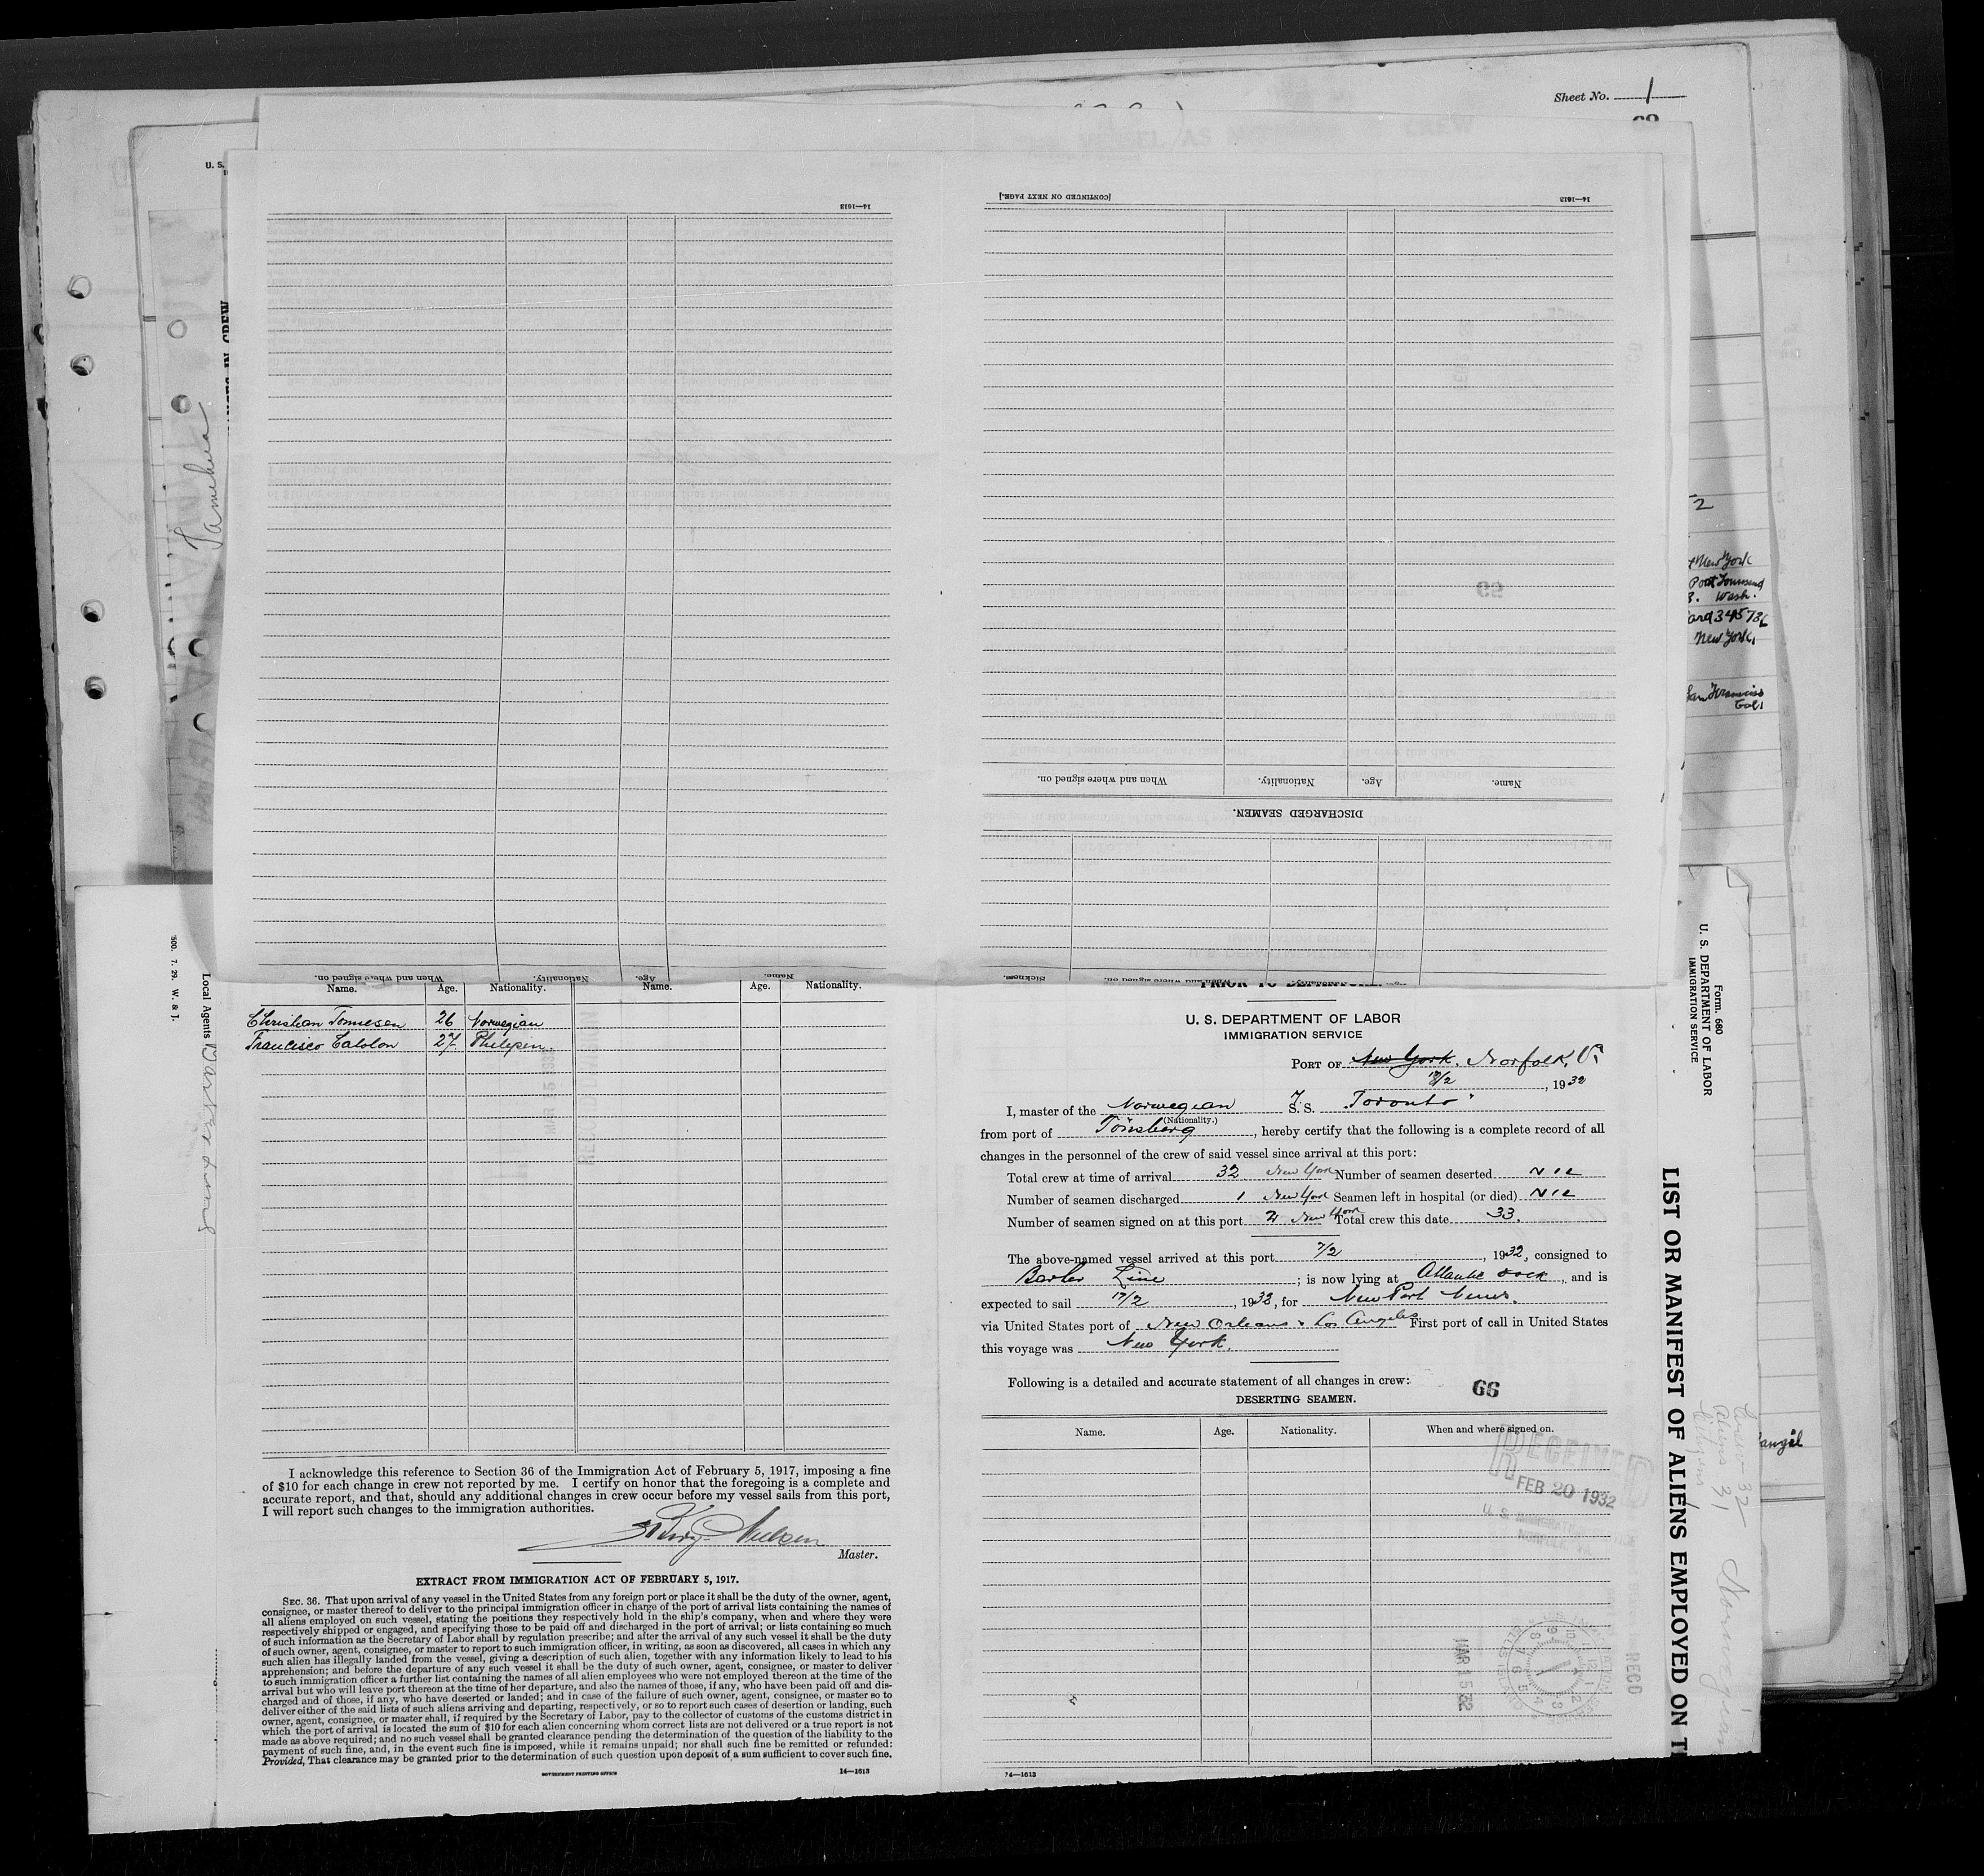 Sheet No. 1
[CONTINUED ON NEXT PAGE.]
14—1613
14—1613
Name.
Age.
Nationality.
When and where signed on.
DISCHARGED SEAMEN.
59
Name.
Age.
Nationality.
When and where signed on.
Sickness.
When and where signed on.
Tamehua
U. S.
2
New York
Port Townsend
Wash.
New York,
San Francisco
Cal.
500. 7. 29. W. & T.
Local Agents
Name. Age. Nationality. Name. Age. Nationality.
Christian Tonnesen 26 Norwegian
Francisco Cabolon 27 Philipin.
I acknowledge this reference to Section 36 of the Immigration Act of February 5, 1917, imposing a fine
of $10 for each change in crew not reported by me. I certify on honor that the foregoing is a complete and
accurate report, and that, should any additional changes in crew occur before my vessel sails from this port,
I will report such changes to the immigration authorities.
Nielsen
Master.
EXTRACT FROM IMMIGRATION ACT OF FEBRUARY 5, 1917.
SEC. 36. That upon arrival of any vessel in the United States from any foreign port or place it shall be the duty of the owner, agent,
consignee, or master thereof to deliver to the principal immigration officer in charge of the port of arrival lists containing the names of
all aliens employed on such vessel, stating the positions they respectively hold in the ship's company, when and where they were
respectively shipped or engaged, and specifying those to be paid off and discharged in the port of arrival; or lists containing so much
of such information as the Secretary of Labor shall by regulation prescribe; and after the arrival of any such vessel it shall be the duty
of such owner, agent, consignee, or master to report to such immigration officer, in writing, as soon as discovered, all cases in which any
such alien has illegally landed from the vessel, giving a description of such alien, together with any information likely to lead to his
apprehension; and before the departure of any such vessel it shall be the duty of such owner, agent, consignee, or master to deliver
to such immigration officer a further list containing the names of all alien employees who were not employed thereon at the time of the
arrival but who will leave port thereon at the time of her departure, and also the names of those, if any, who have been paid off and dis-
charged and of those, if any, who have deserted or landed; and in case of the failure of such owner, agent, consignee, or master so to
deliver either of the said lists of such aliens arriving and departing, respectively, or so to report such cases of desertion or landing, such
owner, agent, consignee, or master shall, if required by the Secretary of Labor, pay to the collector of customs of the customs district in
which the port of arrival is located the sum of $10 for each alien concerning whom correct lists are not delivered or a true report is not
made as above required; and no such vessel shall be granted clearance pending the determination of the question of the liability to the
payment of such fine, and, in the event such fine is imposed, while it remains unpaid; nor shall such fine be remitted or refunded:
Provided, That clearance may be granted prior to the determination of such question upon deposit of a sum sufficient to cover such fine.
GOVERNMENT PRINTING OFFICE 14—1613
U. S. DEPARTMENT OF LABOR
IMMIGRATION SERVICE
PORT OF New York. Norfolk, Va
19/2, 1932
I, master of the Norwegian S. S. "Toronto"
(Nationality.)
from port of Tönsberg, hereby certify that the following is a complete record of all
changes in the personnel of the crew of said vessel since arrival at this port:
Total crew at time of arrival 32 New York Number of seamen deserted Nil
Number of seamen discharged 1 New York Seamen left in hospital (or died) Nil
Number of seamen signed on at this port 2 New York Total crew this date 33.
The above-named vessel arrived at this port 7/2, 1932, consigned to
Barber Line; is now lying at Atlantic dock, and is
expected to sail 17/2, 1932, for New Port News.
via United States port of New Orleans & Los Angeles First port of call in United States
this voyage was New York.
Following is a detailed and accurate statement of all changes in crew:
66
DESERTING SEAMEN.
Name. Age. Nationality. When and where signed on.
RECEIVED
FEB 20 1932
U. S. IMMIGRATION SERVICE
NORFOLK, VA.
MAR 15 1932
RECD
14—1613
Form 680
U. S. DEPARTMENT OF LABOR
IMMIGRATION SERVICE
LIST OR MANIFEST OF ALIENS EMPLOYED ON T
Crew 32
Aliens 31
Citizen 1
Norwegian